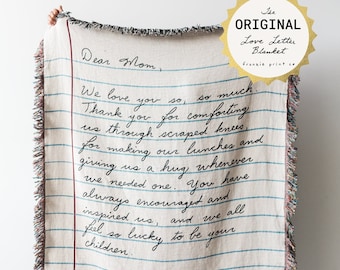 The
ORIGINAL
Love Letter
Blanket
frannie print co
Dear Mom,
We love you so, so much
Thank you for comforting
us through scraped knees
for making our lunches and
giving us a hug whenever
we needed one. You have
always encouraged and
inspired us, and we all
feel so lucky to be your
children.